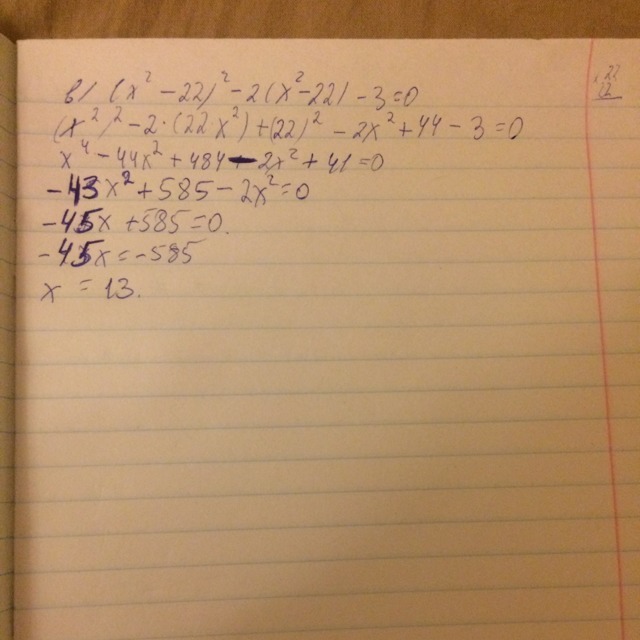 в) (x² - 22)² - 2(x² - 22) - 3 = 0
(x²)² - 2·(22·x²) + (22)² - 2x² + 44 - 3 = 0
x⁴ - 44x² + 484 - 2x² + 41 = 0
-43x² + 585 - 2x² = 0
-45x + 585 = 0.
-45x = -585
x = 13.